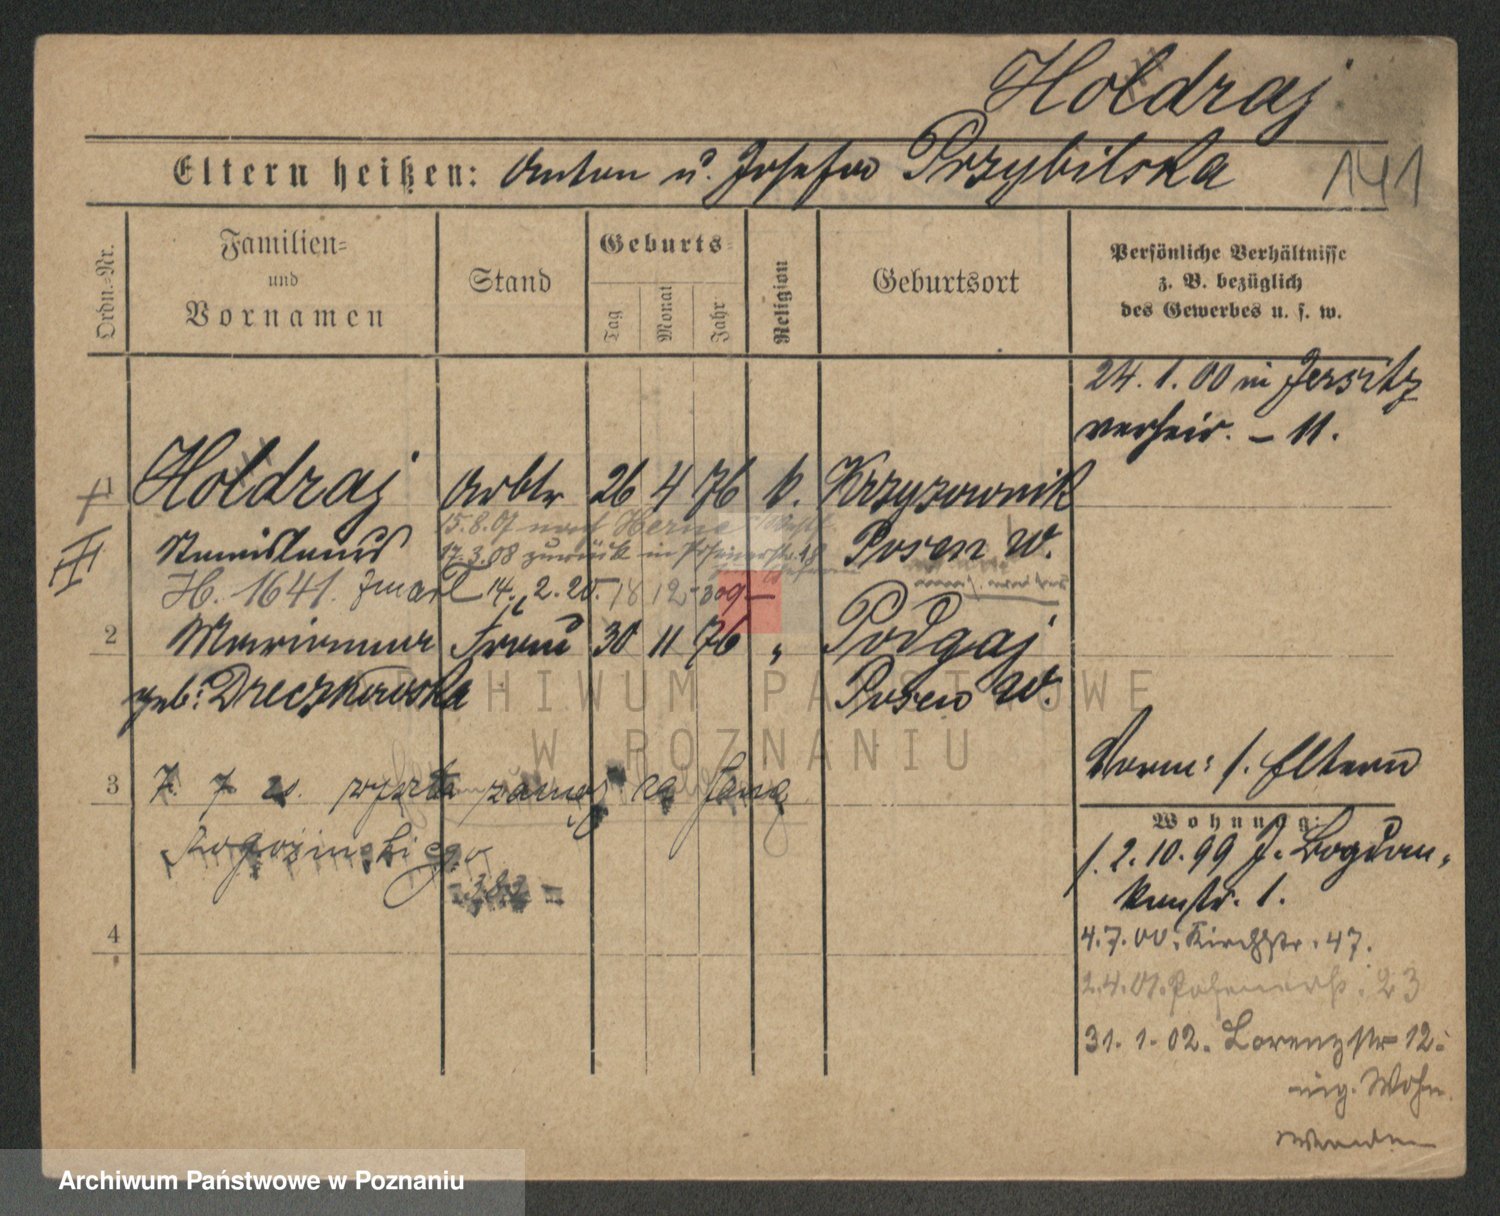 Holdraj
Eltern heißen: Anton u. Josefa Przybilska 141
Ordn.-Nr.
Familien- und Vornamen
Stand
Geburts-
Tag Monat Jahr
Religion
Geburtsort
Persönliche Verhältnisse
z. B. bezüglich
des Gewerbes u. s. w.
24. 1. 00 in Jersitz
verheir. – 11.
1 Holdraj Arbtr 26 4 76 k. Krzyzownik
15.8.07 nach Herne
Stanislaus Posen W.
17.3.08 zurück in
H. 1641. zmarł 14. 2. 20. 18 12
2 Marianna Frau 30 11 76 " Podgaj
geb: Dreczkowska Posen W.
Vorm: s. Eltern
3 7. 7 21.
Rogozinskiego
Wohnung:
s. 2. 10. 99 J. Bogdan-
kastr. 1.
4
4. 7. 00. Kirchstr. 47.
2. 4. 01. Posenerstr. 23
31. 1. 02. Lorenzstr 12.
eig. Wohn.
ARCHIWUM PAŃSTWOWE
W POZNANIU
Archiwum Państwowe w Poznaniu